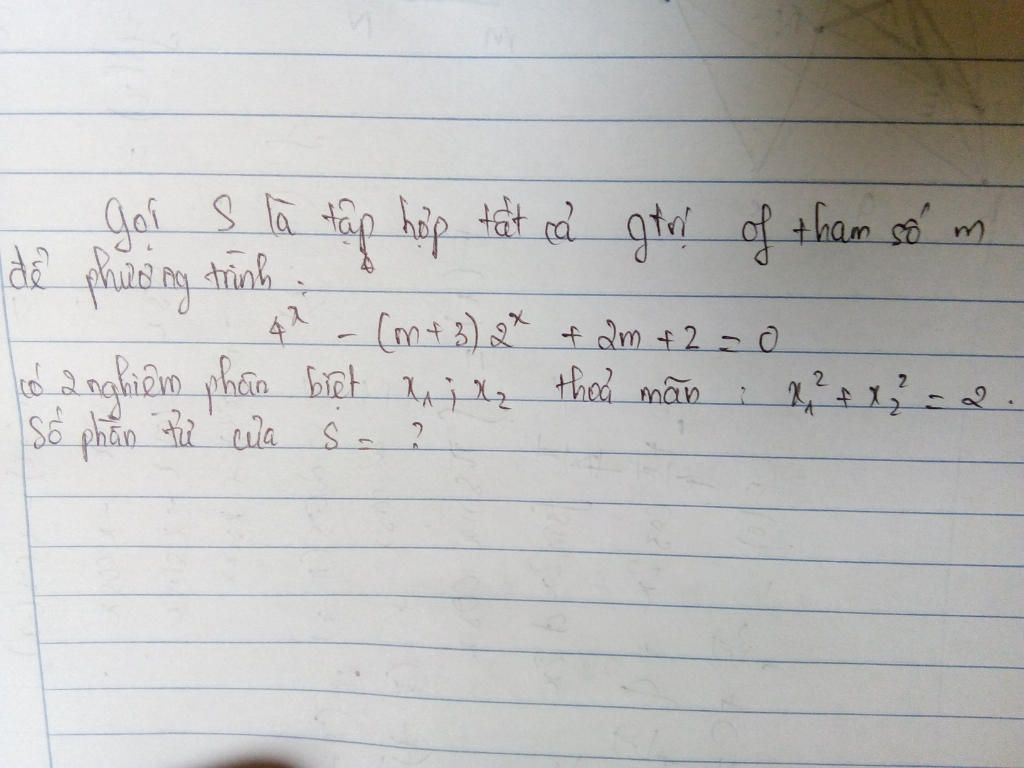 Gọi S là tập hợp tất cả gtrị of tham số m
để phương trình :
4^x - (m+3) 2^x + 2m + 2 = 0
có 2 nghiệm phân biệt x₁ ; x₂ thoả mãn : x₁² + x₂² = 2 .
Số phần tử của S = ?